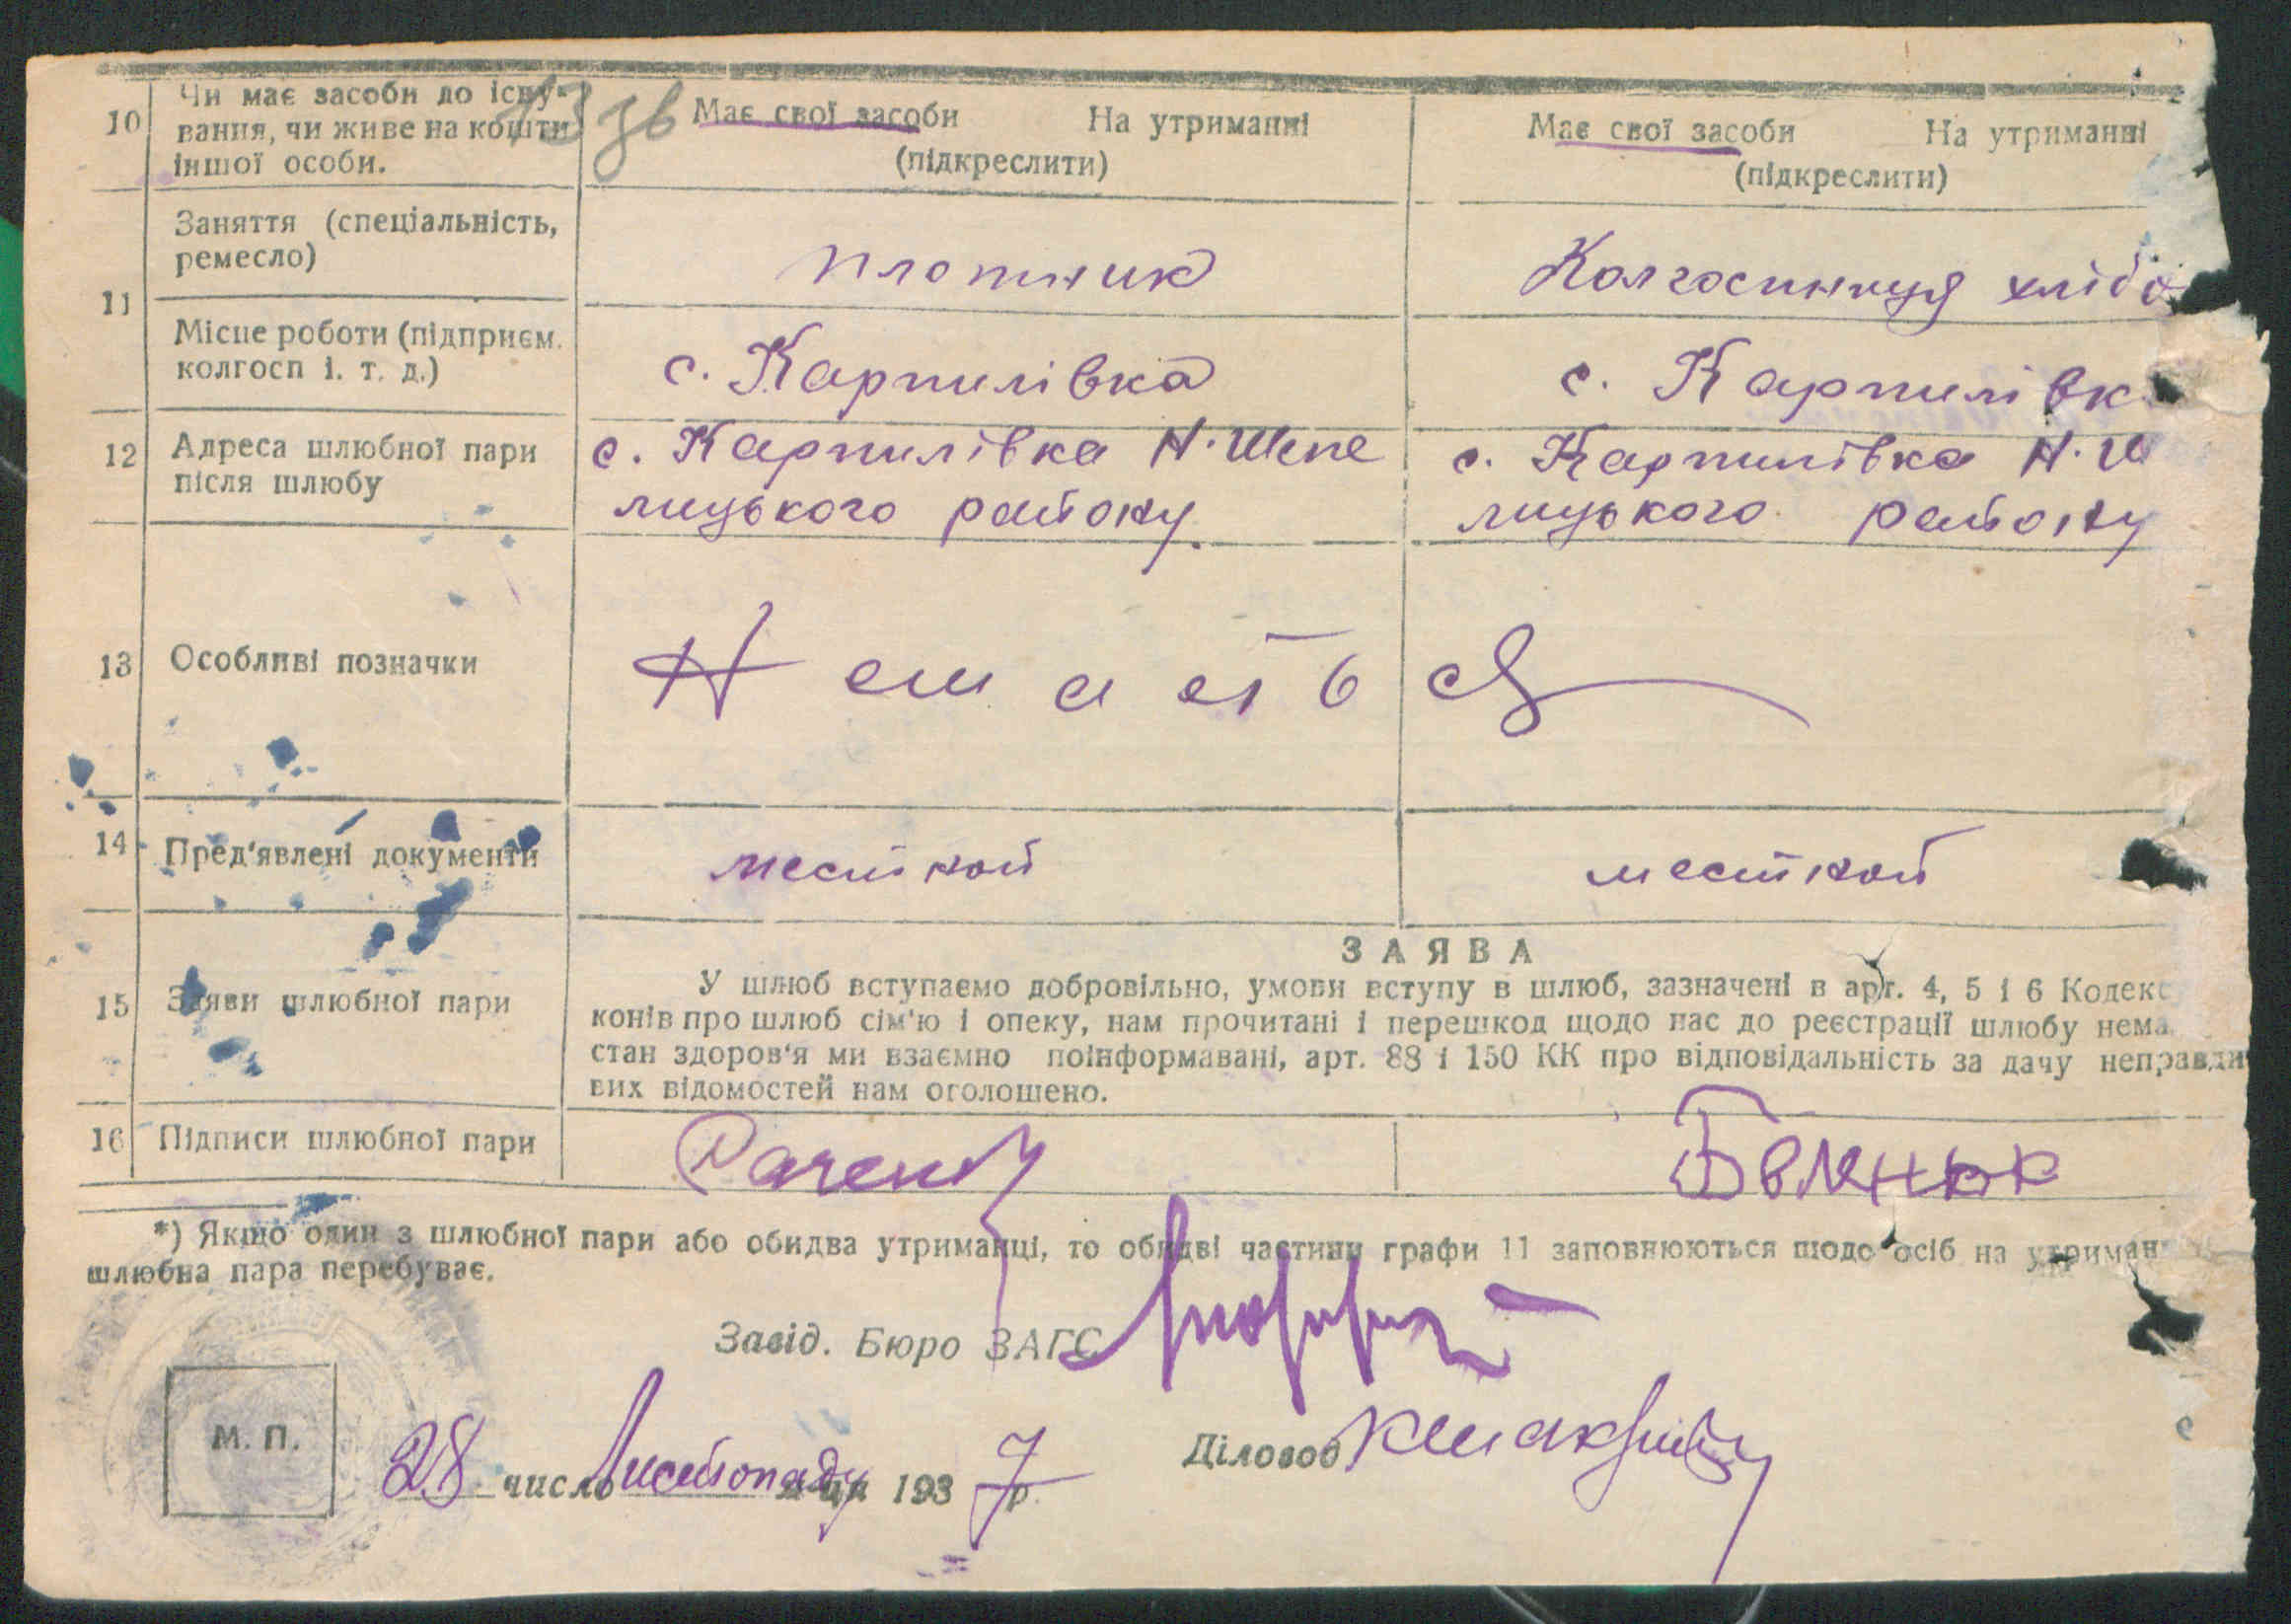 10 Чи має засоби до існу-
вання, чи живе на кошти
іншої особи.
13 зв
Має свої засоби На утриманні
(підкреслити)
Має свої засоби На утриманні
(підкреслити)
11 Заняття (спеціальність,
ремесло)
плотник
Колгоспниця хлібо
Місце роботи (підприєм.
колгосп і. т. д.)
с. Карпилівка
с. Карпилівк
12 Адреса шлюбної пари
після шлюбу
с. Карпилівка Н.Шепе
лицького району.
с. Карпилівка Н.Ш
лицького району
13 Особливі позначки
Немається
14 Пред'явлені документи
местной
местной
15 Заяви шлюбної пари
ЗАЯВА
У шлюб вступаємо добровільно, умови вступу в шлюб, зазначені в арт. 4, 5 і 6 Кодекс
конів про шлюб сім'ю і опеку, нам прочитані і перешкод щодо нас до реєстрації шлюбу нема
стан здоров'я ми взаємно поінформавані, арт. 88 і 150 КК про відповідальність за дачу неправди
вих відомостей нам оголошено.
16 Підписи шлюбної пари
*) Якщо один з шлюбної пари або обидва утриманці, то обидві частини графи 11 заповнюються щодо осіб на утриман
шлюбна пара перебуває.
Завід. Бюро ЗАГС
М. П.
28 число Листопаду м-ця 1937 р.
Діловод